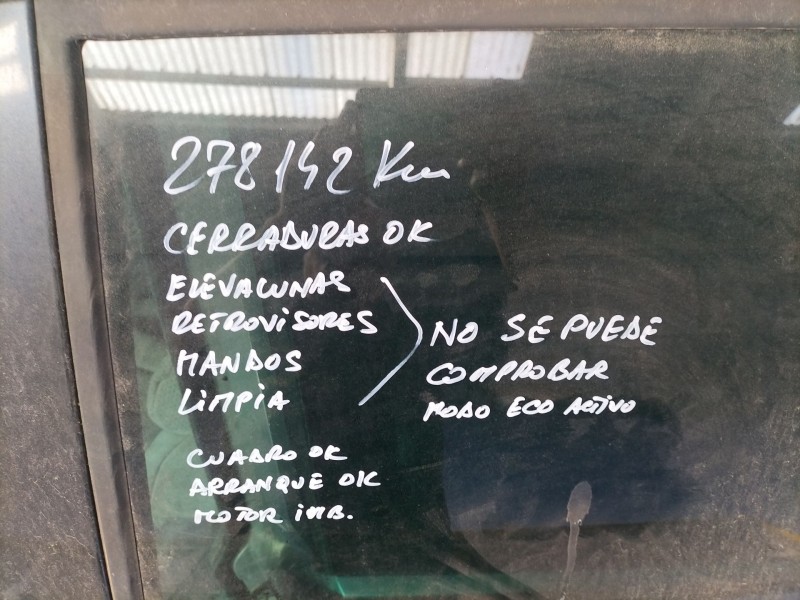 278142 Km
CERRADURAS OK
ELEVALUNAS
RETROVISORES
MANDOS
LIMPIA
NO SE PUEDE
COMPROBAR
MODO ECO ACTIVO
CUADRO OK
ARRANQUE OK
MOTOR IMB.